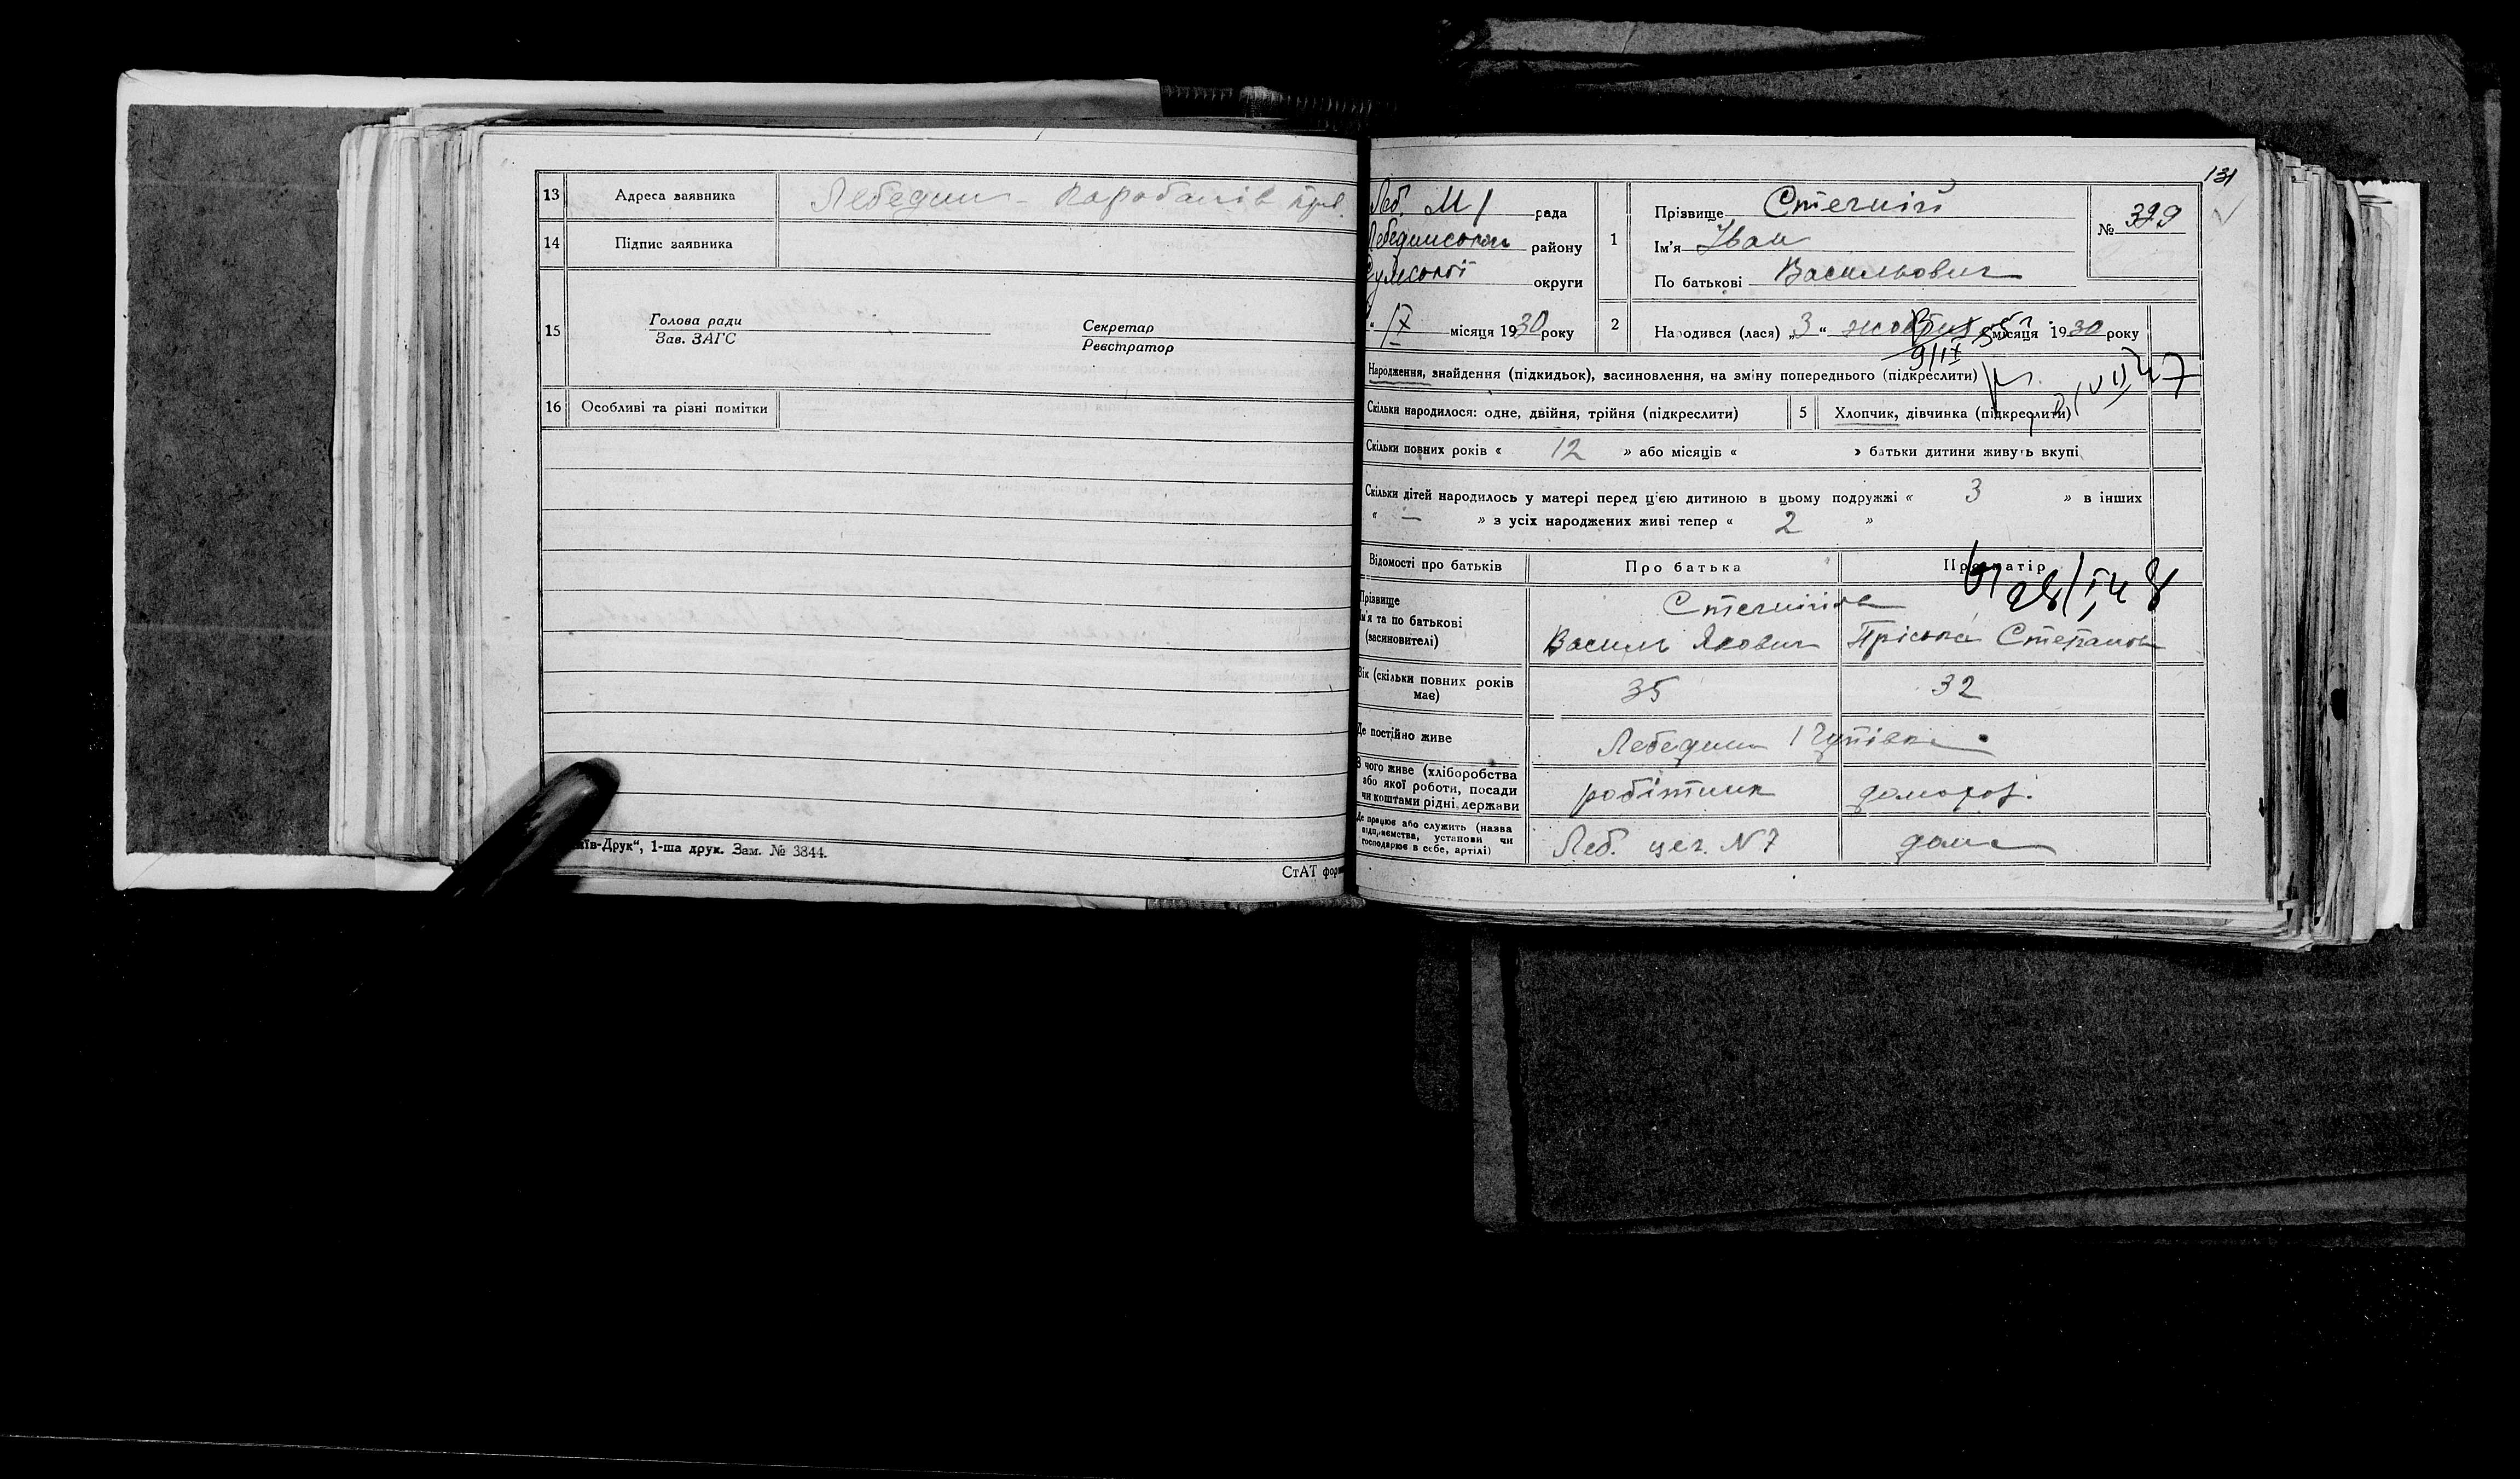 13 Адреса заявника Лебедин -
14 Підпис заявника
15 Голова ради
Зав. ЗАГС
Секретар
Реєстратор
16 Особливі та різні помітки
їв-Друк“, 1-ша друк. Зам. № 3844.
СтАТ форм
131
Леб. М/ рада
району
Сумської округи
" ІХ місяця 1930 року
1 Прізвище Стегній
Ім'я Іван
По батькові Васильович
№ 399
2 Народився (лася) „3 “ місяця 1930 року
9/ІХ
Народження, знайдення (підкидьок), засиновлення, на зміну попереднього (підкреслити)
Скільки народилося: одне, двійня, трійня (підкреслити) 5 Хлопчик, дівчинка (підкреслити)
Скільки повних років « 12 » або місяців « » батьки дитини живуть вкупі
Скільки дітей народилось у матері перед цією дитиною в цьому подружжі « 3 » в інших
« — » з усіх народжених живі тепер « 2 »
Відомості про батьків Про батька Про матір
28/І 48
Прізвище
ім'я та по батькові
(засиновителі)
Василь Якович Пріська Степанов
Вік (скільки повних років
має) 35 32
Де постійно живе Лебедин
З чого живе (хліборобства
або якої роботи, посади
чи коштами рідні, держави робітник домохоз.
Де працює або служить (назва
підприємства, установи чи
господарює в себе, артілі) Леб. цег. N 7 дома